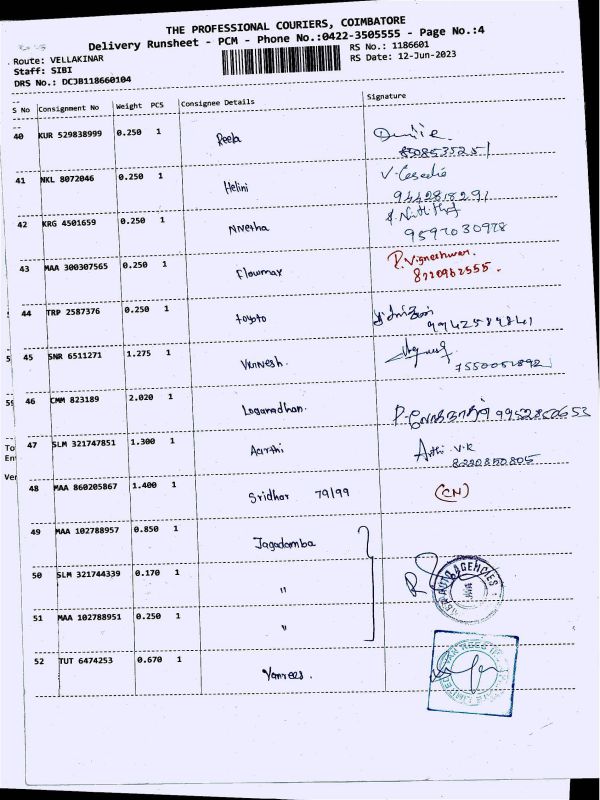 THE PROFESSIONAL COURIERS, COIMBATORE
Delivery Runsheet - PCM - Phone No.:0422-3505555 - Page No.:4
Route: VELLAKINAR
RS No.: 1186601
Staff: SIBI
RS Date: 12-Jun-2023
DRS No.: DCJB118660104
S No Consignment No Weight PCS Consignee Details Signature
40 KUR 529838999 0.250 1 Reeba
8508535251
41 NKL 8072046 0.250 1 Helini V.
9442818291
42 KRG 4501659 0.250 1 Nivetha
9597030978
43 MAA 300307565 0.250 1 Flowmax R. Vigneshwar.
8220962555.
44 TRP 2587376 0.250 1 toyoto
9942589841
5 45 SNR 6511271 1.275 1 Vkinesh.
7550051892
59 46 CMM 823189 2.020 1 Loganadhan. P. லோகநாதன் 9952852653
To 47 SLM 321747851 1.300 1 Aarthi Arthi V.R
8220850805
Ver 48 MAA 860205867 1.400 1 Sridhar 79/99 (CN)
49 MAA 102788957 0.850 1 Jagadamba
50 SLM 321744339 0.170 1 "
AUTO AGENCIES
51 MAA 102788951 0.250 1 "
52 TUT 6474253 0.670 1 Vanrees.